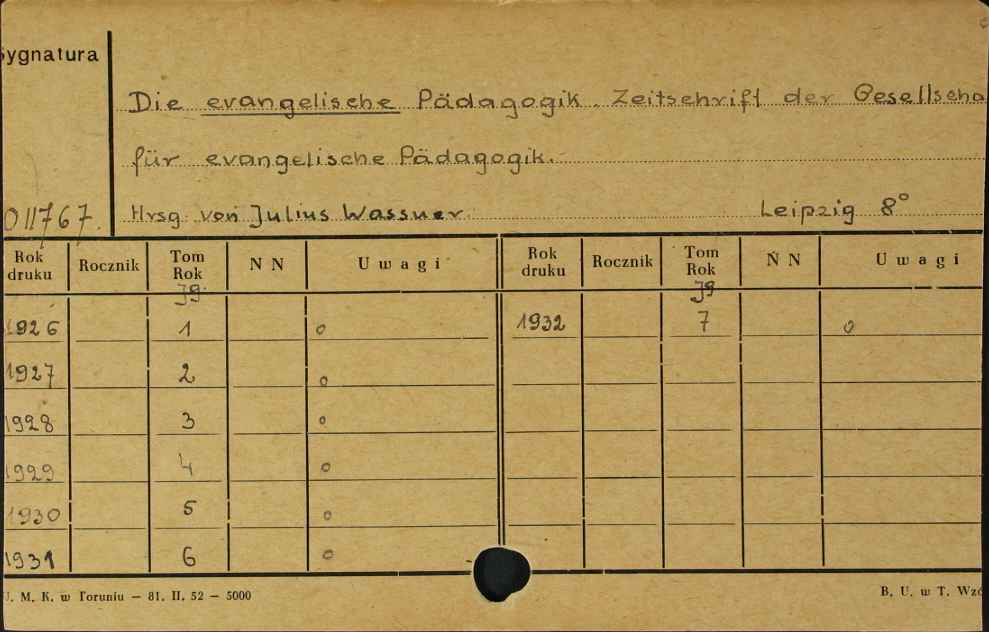 Sygnatura
Die evangelische Pädagogik. Zeitschrift der Gesellscha
für evangelische Pädagogik.
011767. Hrsg. von Julius Wassner Leipzig 8°
Rok druku Rocznik Tom Rok N N Uwagi Rok druku Rocznik Tom Rok N N Uwagi
Jg. Jg
1926 1 o 1932 7 o
1927 2 o
1928 3 o
1929 4 o
1930 5 o
1931 6 o
U. M. K. w Toruniu — 81. II. 52 — 5000 B. U. w T. Wzó